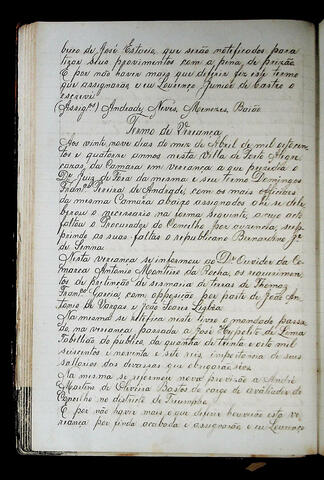 breo de José Estacio, que serão notificados para
tirar seus provimentos com a pena de prizão.
E por não haver mais que deferir fez este termo
que assignarão e eu Lourenço Junior de Castro o
escrevi.
(Assig.) Andrade, Neves, Menezes, Baião
Termo de Vreança
Aos vinte nove dias do mez de Abril de mil oitocen-
tos e quatorze annos nesta Villa de Porto Alegre
cazas da Camara em vereança a que prezidio o
Dr Juiz de Fora da mesma e seu Termo Domingos
Franco Pereira de Andrade, com os mais officiaes
da mesma Camara abaixo assignados onde se dele
berou o necessario na forma seguinte, a cujo acto
faltou o Procurador do Concelho por auzencia, sup-
prindo as suas faltas o republicano Bernardino Je
de Senna.
Nesta vereança se informou ao Dr Ouvidor da Co-
marca Antonio Monteiro da Rocha, os requerimen-
tos de pertenção de sesmaria de terras de Thomaz
Franco Garcia, com opposição por parte de João An-
tonio de Vargas e José Soares
Na mesma se ratefica neste livro o mandado passa-
do, na vereança passada a José Hypolito de Lima
Tabellião do publico, da quantia de trinta e oito mil
seiscentos e noventa e sete reis, importancia de seus
sallarios das devassas que
Na mesma se reformou nova provizão a André
Martins de Oliveira Bastos do cargo de avaliador do
Concelho no districto de Triumpho
E por não haver mais o que deferir houverão esta ve-
riança por finda acabada e assignarão e eu Lourenço